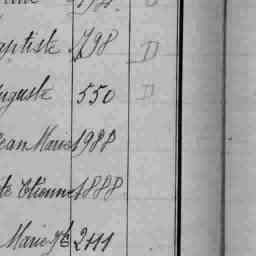 aptiste 1798 D
uguste 550 D
Jean Marie 1988
te Etienne 1888
Marie Jh 2111